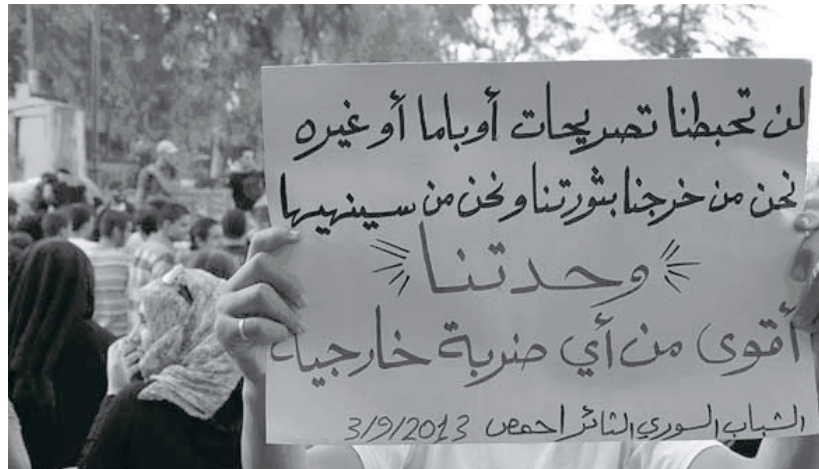 لن تحبطنا تصريحات أوباما أو غيره
نحن من خرجنا بثورتنا ونحن من سينهيها
وحدتنا
أقوى من أي ضربة خارجية
الشباب السوري الثائر / حمص 3/9/2013